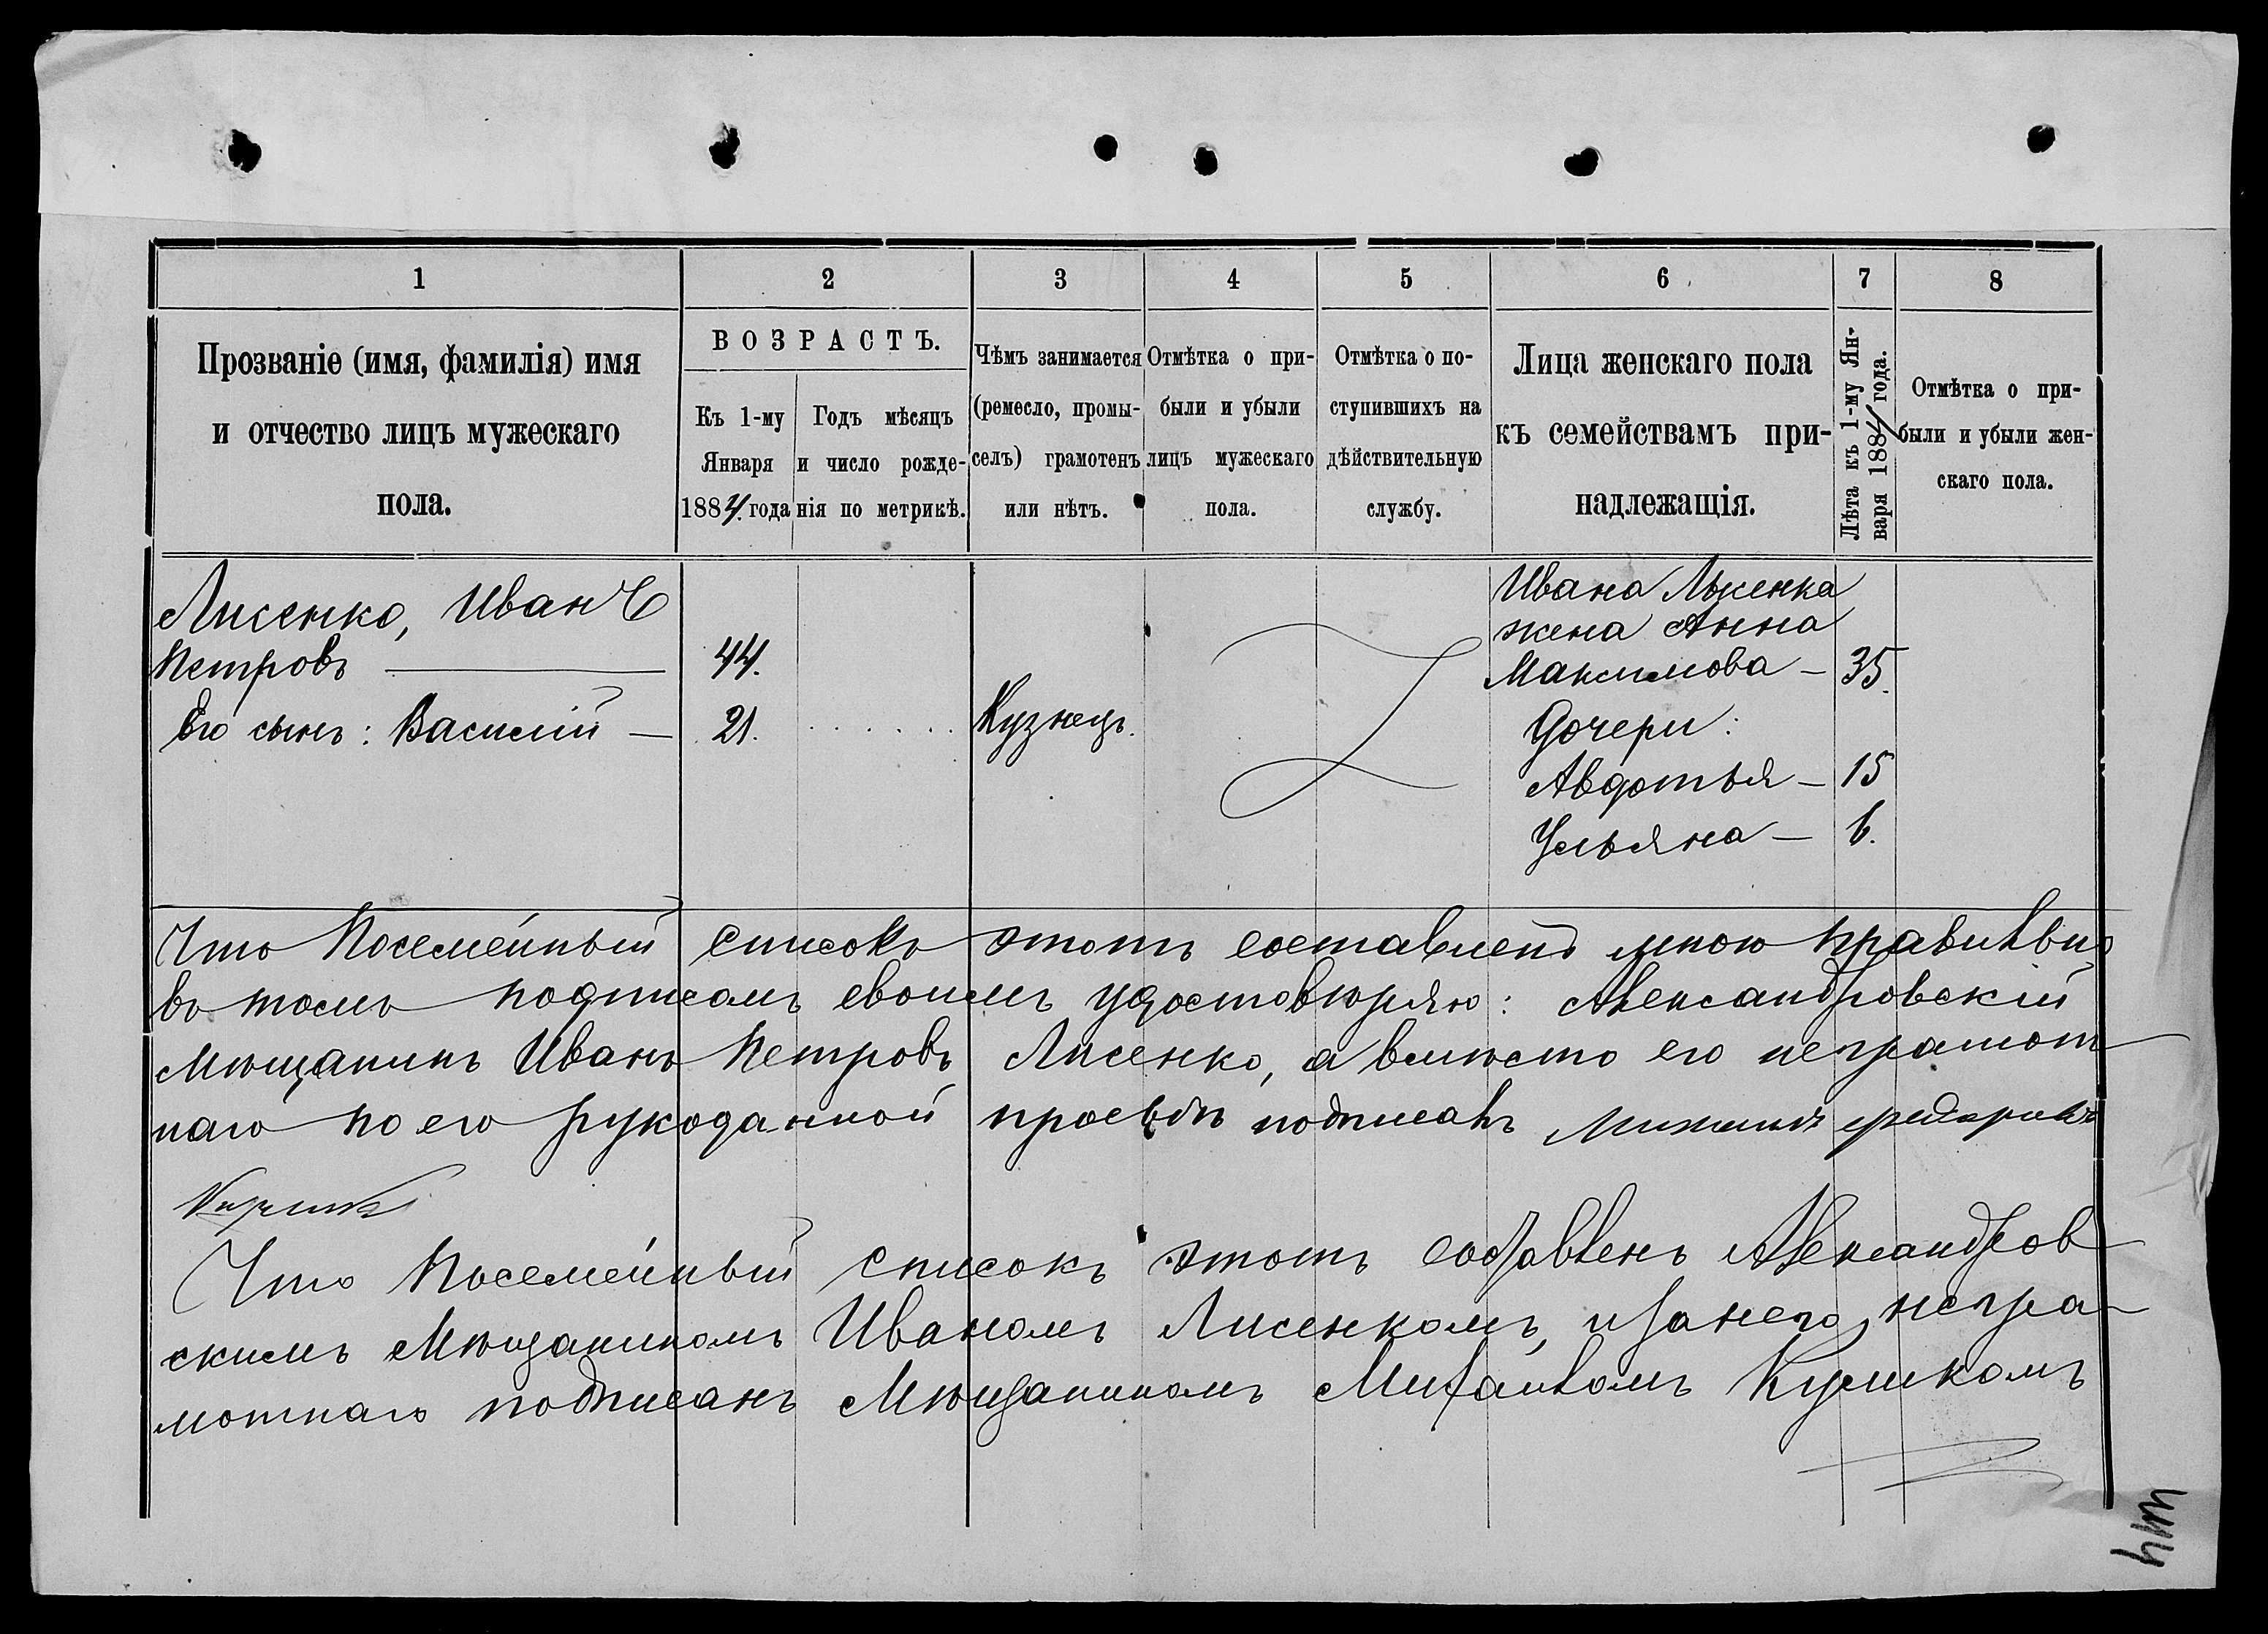 1 2 3 4 5 6 7 8
Прозваніе (имя, фамилія) имя
и отчество лицъ мужескаго
пола.
ВОЗРАСТЪ.
Къ 1-му
Января
1884 года
Годъ мѣсяцъ
и число рожде-
нія по метрикѣ.
Чѣмъ занимается
(ремесло, промы-
селъ) грамотенъ
или нѣтъ.
Отмѣтка о при-
были и убыли
лицъ мужескаго
пола.
Отмѣтка о по-
ступившихъ на
дѣйствительную
службу.
Лица женскаго пола
къ семействамъ при-
надлежащія.
Лѣта къ 1-му Ян-
варя 1884 года.
Отмѣтка о при-
были и убыли жен-
скаго пола.
Лисенко, Иванъ
Петровъ — 44.
Его сынъ: Василій — 21. Кузнецъ.
Ивана Лисенка
жена Анна
Максимова — 35.
Дочери:
Авдотья — 15
Ульяна — 6.
Что Посемейный списокъ этотъ составленъ мною правильно
въ томъ подписомъ своимъ удостовѣряю: Александровскій
Мѣщанинъ Иванъ Петровъ Лисенко, а вмѣсто его неграмот
наго по его рукоданной прозьбѣ подписалъ
Что Посемейный списокъ этотъ составленъ Александров
скимъ Мѣщаниномъ Иваномъ Лисенкомъ, и за него, негра-
мотнаго подписанъ Мѣщаниномъ Михаиломъ
444